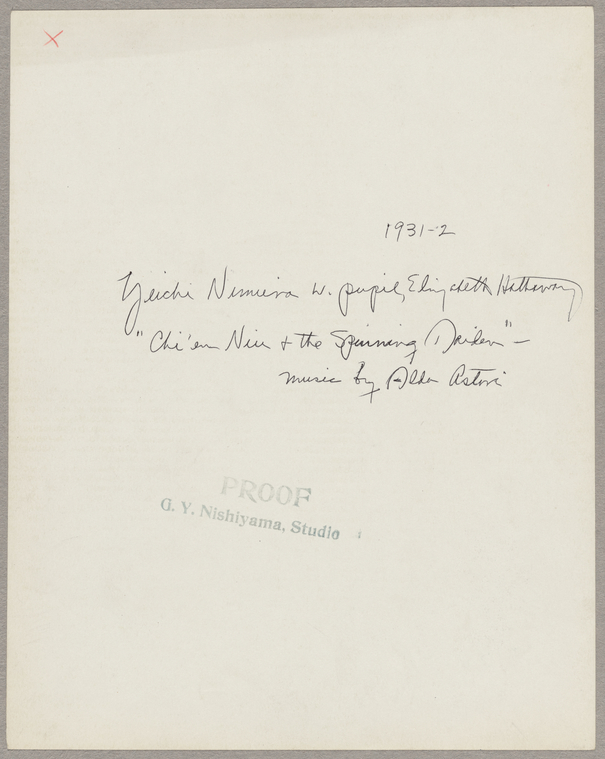 1931-2
Yeichi Nimura w. pupil, Elizabeth Hathaway
"Chi'en Niu & the Spinning Maiden" -
music by Aldo Astori
PROOF
G. Y. Nishiyama, Studio